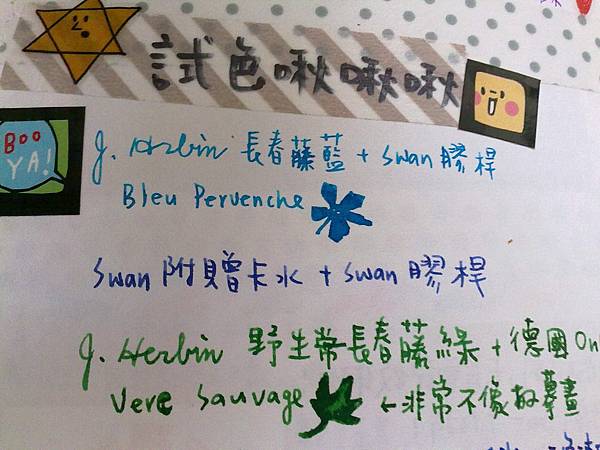 試色啾啾啾
BOO
YA!
J. Herbin 長春藤藍 + Swan 膠桿
Bleu Pervenche
Swan 附贈卡水 + Swan 膠桿
J. Herbin 野生常長春藤綠 + 德國 On
Vere Sauvage ←非常不像的摹畫